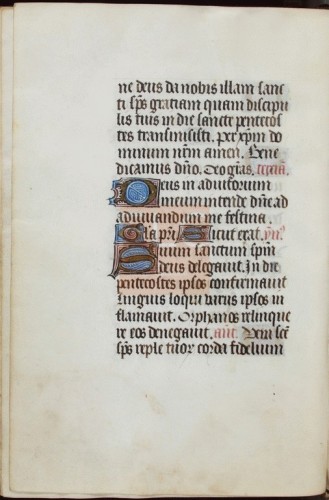 ne deus da nobis illam sanc
ti sps gratiam quam discipu
lis tuis in die sancte pentecos
tes transmisisti. per xpm do
minum nrm amen. Bene
dicamus dno. Deo gras.
Deus in adiutorium
meum intende dne ad
adiuuandum me festina.
Gla pri Sicut erat. ymº
Suum sanctum spm
deus delegauit. In die
penthecostes ipsos confirmauit
linguis loqui uariis ipsos in
flamauit. Orphanos relinque
re eos denegauit. ant. Veni sce
sps reple tuor corda fidelium